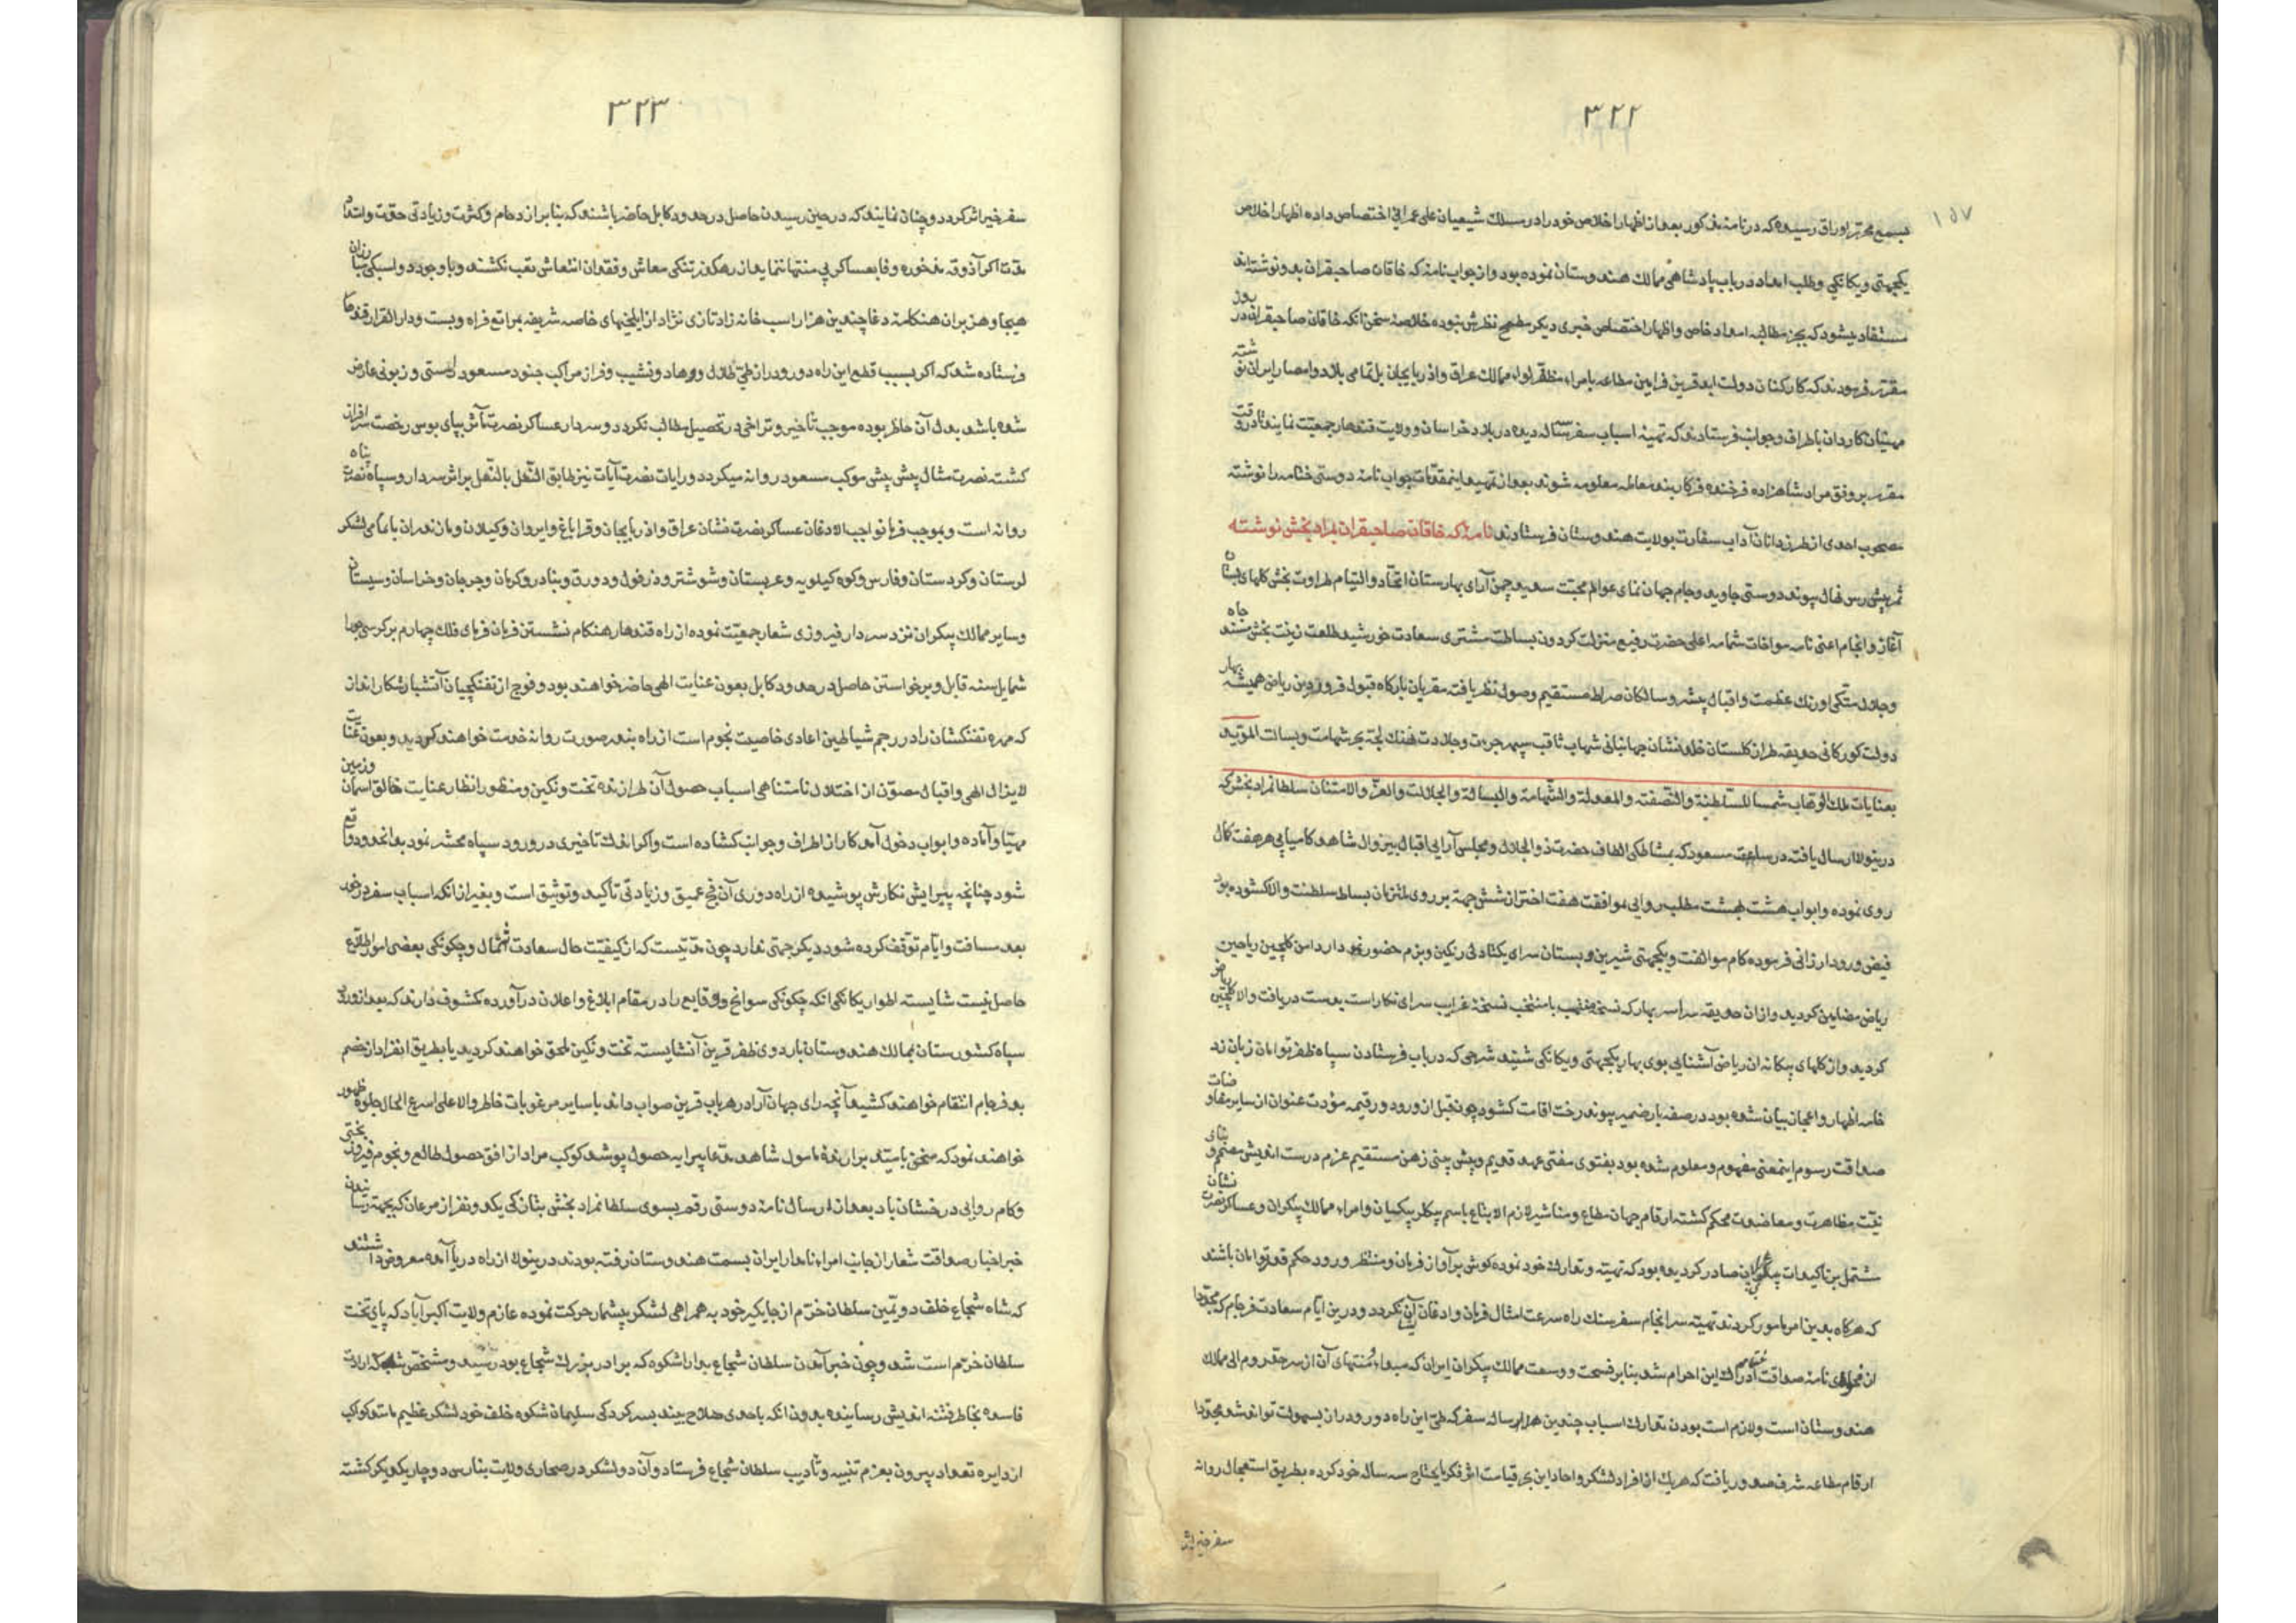 ۳۲۲
۱۵۷
بسمع محرر اوراق رسیده که در نامه مذکور بعد از اظهار اخلاص خود را در سلک شیعیان علی عمرانی اختصاص داده اظهار اخلاص
یکجهتی و یکانکی و طلب امداد در باب پادشاهی ممالک هندوستان نموده بود و از جواب نامه که خاقان صاحبقران بدو نوشته‌اند
مستفاد میشود که بجز مطالبه امداد خاص و اظهار اختصاص خبری دیکر مطمح نظرش نبوده خلاصه سخن آنکه خاقان صاحبقران در روز
مقرر فرمودند که کارکنان دولت ابد قرین فرامین مطاعه بامراء مظفر لواء ممالک عراق و اذربایجان بل تمامی بلاد و امصار ایران نوشته
مهیتان کاردان باطراف و جوانب فرستادند که تهیه اسباب سفر یکساله دیده در بلاد خراسان و ولایت قندهار جمعیت نمایند تا در وقت
مقرر بر وفق مراد شاهزاده فرخنده فر کاربند معامله معلومه شوند بعد از تمهید اینمقدمات جواب نامه دوستی ختامه را نوشته
مصحوب احدی از طرز دانان آداب سفارت بولایت هندوستان فرستادند نامهٔ که خاقان صاحبقران بمراد بخش نوشته
ثمر پیش رس نهال پیوند دوستی جاوید و جام جهان نمای عوالم محبت سعید و چمن آرای بهارستان اتحاد و التیام طراوت بخش کلهای بستان
آغاز و انجام اعنی نامه مواخات شمامه اعلی حضرت رفیع منزلت کردون بساطت مشتری سعادت خورشید طلعت زینت بخش مسند جاه
و جلال متکی اورنک عظمت و اقبال پیشرو سالکان صراط مستقیم وصول نظر یافته مقربان بارکاه قبول فروردین ریاض همیشه بهار
دولت کورکانی حدیقه طراز کلستان خلد نشان جهانبانی شهاب ثاقب سپهر جرءت و جلادت نهنک لجه بحر شهامت و بسالت المؤید
بعنایات ملک الوهاب شمسا للسلطنة والنصفته والمعدلة والشهامة والبسالة والجلالت والعز والامتنان سلطانمراد بخش که
درینولا ارسال یافته در ساعت مسعود که بمشاطکی الطاف حضرت ذو الجلال و مجلس آرایی اقبال بیزوال شاهد کامیابی هر هفت کمال
روی نموده و ابواب هشت بهشت مطلب روایی بموافقت هفت اختران شش جهة بر روی ملتزمان بساط سلطنت والا کشوده بود
فیض ورود ارزانی فرموده کام موالفت و یکجهتی شیرین و بستان سرای یکتادلی رنکین و بزم حضور دار دامن کلچین ریاحین
ریاض مضامین کردید و از ان حدیقه سراسر بهار که نسخه منتخب نسخهٔ غرایب سرای نکار است بدست دریافت والا کلچین ریاض
کردید و از کلهای بیکانه ان ریاض آشنایی بوی بهار یکجهتی و یکانکی شنید شرحی که در باب فرستادن سپاه ظفر توامان زبان زد
خامه اظهار و اعجاز بیان شده بود در صفه بار ضمیر پیوند رخت اقامت کشود چون قبل از ورود رقیمه مودت عنوان از سایر مفاوضات
صداقت رسوم اینمعنی مفهوم و معلوم شده بود بفتوی مفتی عهد قدیم و پیش بینی ذهن مستقیم عزم درست اندیش مصمم و بنای
نیت مظاهرت و معاضدت محکم کشته ارقام جهان مطاع و مناشیر لازم الاتباع باسم بیکلربیکیان و امراء ممالک بیکران و عساکر نصرت نشان
مشتمل بر تاکیدات بیکران صادر کردیده بود که تهیه و تدارک خود نموده کوش بر آواز فرمان و منتظر ورود حکم قدر توامان باشند
که هرکاه بدین امر مامور کردند تهیه سرانجام سفر سنک راه سرعت امتثال فرمان و اذعان آن نکردد و درین ایام سعادت فرجام که مجددا
از فحوای نامه صداقت ختامه ادراک این احرام شد بنابر فسحت و وسعت ممالک بیکران ایران که مبداء و منتهای آن از سرحد روم الی ممالک
هندوستان است و لازم است بودن تدارک اسباب چندین هزار ساله سفر که طی این راه دور و دراز بسهولت تواند شد مجددا
ارقام مطاعه شرف صدور یافت که هریک از افراد لشکر و احاد این بحر قیامت اثر فکر مایحتاج سه ساله خود کرده بطریق استعجال روانه
سفر خیر اثر
۳۲۳
سفر خیر اثر کردد و چنان نمایند که در حین رسیدن حاصل در حدود کابل حاضر باشند که بنابر ازدحام و کثرت و زیادتی حقت و امتداد
مدت اکر آذوقه مذخوره وفا بعساکر بی منتها ننماید از رهکذر تنکی معاش و فقدان انتعاش تعب نکشند و با وجود دو اسبکی مبارزان
هیجا و هزبران هنکامه دغا چندین هزار اسب خانه زاد تازی نژاد از ایلخیهای خاصه شریفه بمراتع فراه و بست و دارالقرار قندهار
فرستاده شد که اکر بسبب قطع این راه دور و دراز طی تلال و وهاد و نشیب و فراز مراکب جنود مسعود را سستی و زبونی عارض
شده باشد بدل آن حاضر بوده موجب تأخیر و تراخی در تحصیل مطالب نکردد و سردار عساکر نصرت مآثر بپای بوس رخصت سرافراز
کشته نصرت مثال پیش پیش موکب مسعود روانه میکردد و رایات نصرت آیات نیز طابق النعل بالنعل بر اثر سردار و سپاه نصرت پناه
روانه است و بموجب فرمان واجب الاذعان عساکر نصرت نشان عراق و اذربایجان و قراباغ و ایروان و کیلان و مازندران با تمامی لشکر
لرستان و کردستان و فارس و کوه کیلویه و عربستان و شوشتر و دزفول و دورق و بنادر و کرمان و جرجان و خراسان و سیستان
و سایر ممالک بیکران نزد سردار فیروزی شعار جمعیت نموده از راه قندهار هنکام نشستن فرمان فرمای فلک چهارم بر کرسی جوزا
شمایل سنه قابل و برخواستن حاصل در حدود کابل بعون عنایت الهی حاضر خواهند بود و فوج از تفنکچیان آتشبار شکار انداز
که مهره تفنکشان را در رجم شیاطین اعادی خاصیت نجوم است از راه بندر صورت روانه خدمت خواهند کردید و بعون عنایت
لایزال الهی و اقبال مصون از اختلال نامتناهی اسباب حصول آن طرازنده تخت و نکین و منظور انظار عنایت خالق آسمان و زمین
مهیا و آماده و ابواب دخول آمد کار از اطراف و جوانب کشاده است و اکر اندک تاخیری در ورود سپاه محشر نمود بدانحدود واقع
شود چنانچه پیرایش نکارش پوشیده از راه دوری آن فج عمیق و زیادتی تأکید و توثیق است و بغیر از انکه اسباب سفر در خور
بعد مسافت و ایام توقف کرده شود دیکر جهتی ندارد چون مدتیست که از کیفیت حال سعادت اشتمال و چکونکی بعضی امور اطلاع
حاصل نیست شایسته اطوار یکانکی انکه چکونکی سوانح وقایع را در مقام ابلاغ و اعلان درآورده مکشوف دارند که بعد از ورود
سپاه کشورستان بممالک هندوستان باردوی ظفر قرین آنشایسته تخت و نکین ملحق خواهند کردید یا بطریق انفراد از خصم
بدفرجام انتقام خواهند کشید آنچه رای جهان آرا در هر باب قرین صواب داند با سایر مرغوبات خاطر والا علی اسرع الحال جلوه ظهور
خواهند نمود که سخن بامتید بران رفته مامول شاهد مدعا پیرایه حصول پوشد کوکب مراد از افق حصول طالع و نجوم فیروز بختی
و کام روایی درخشان باد بعد از ارسال نامه دوستی رقم بسوی سلطانمراد بخش بثانی یکدو نفر از مردمان که بجهة رسانیدن
خبر اخبار صداقت شعار از جانب امراء نامدار ایران بسمت هندوستان رفته بودند درینولا از راه دریا آمده معروض داشتند
که شاه شجاع خلف دویمین سلطان خرم از جایکیر خود به همراهی لشکر بیشمار حرکت نموده عازم ولایت اکبرآباد که پای تخت
سلطان خرم است شد و چون خبر آمدن سلطان شجاع بداراشکوه که برادر بزرک شجاع بود رسید و مشخص شد که ارادت
فاسده بخاطر فتنه اندیش رسانیده بدون انکه باحدی صلاح بیند بسرکردکی سلیمان شکوه خلف خود لشکر عظیم مانند کواکب
از دایره تعداد بیرون بعزم تنبیه و تأدیب سلطان شجاع فرستاد و آن دو لشکر در صحاری ولایت بنارس دوچار یکدیکر کشته